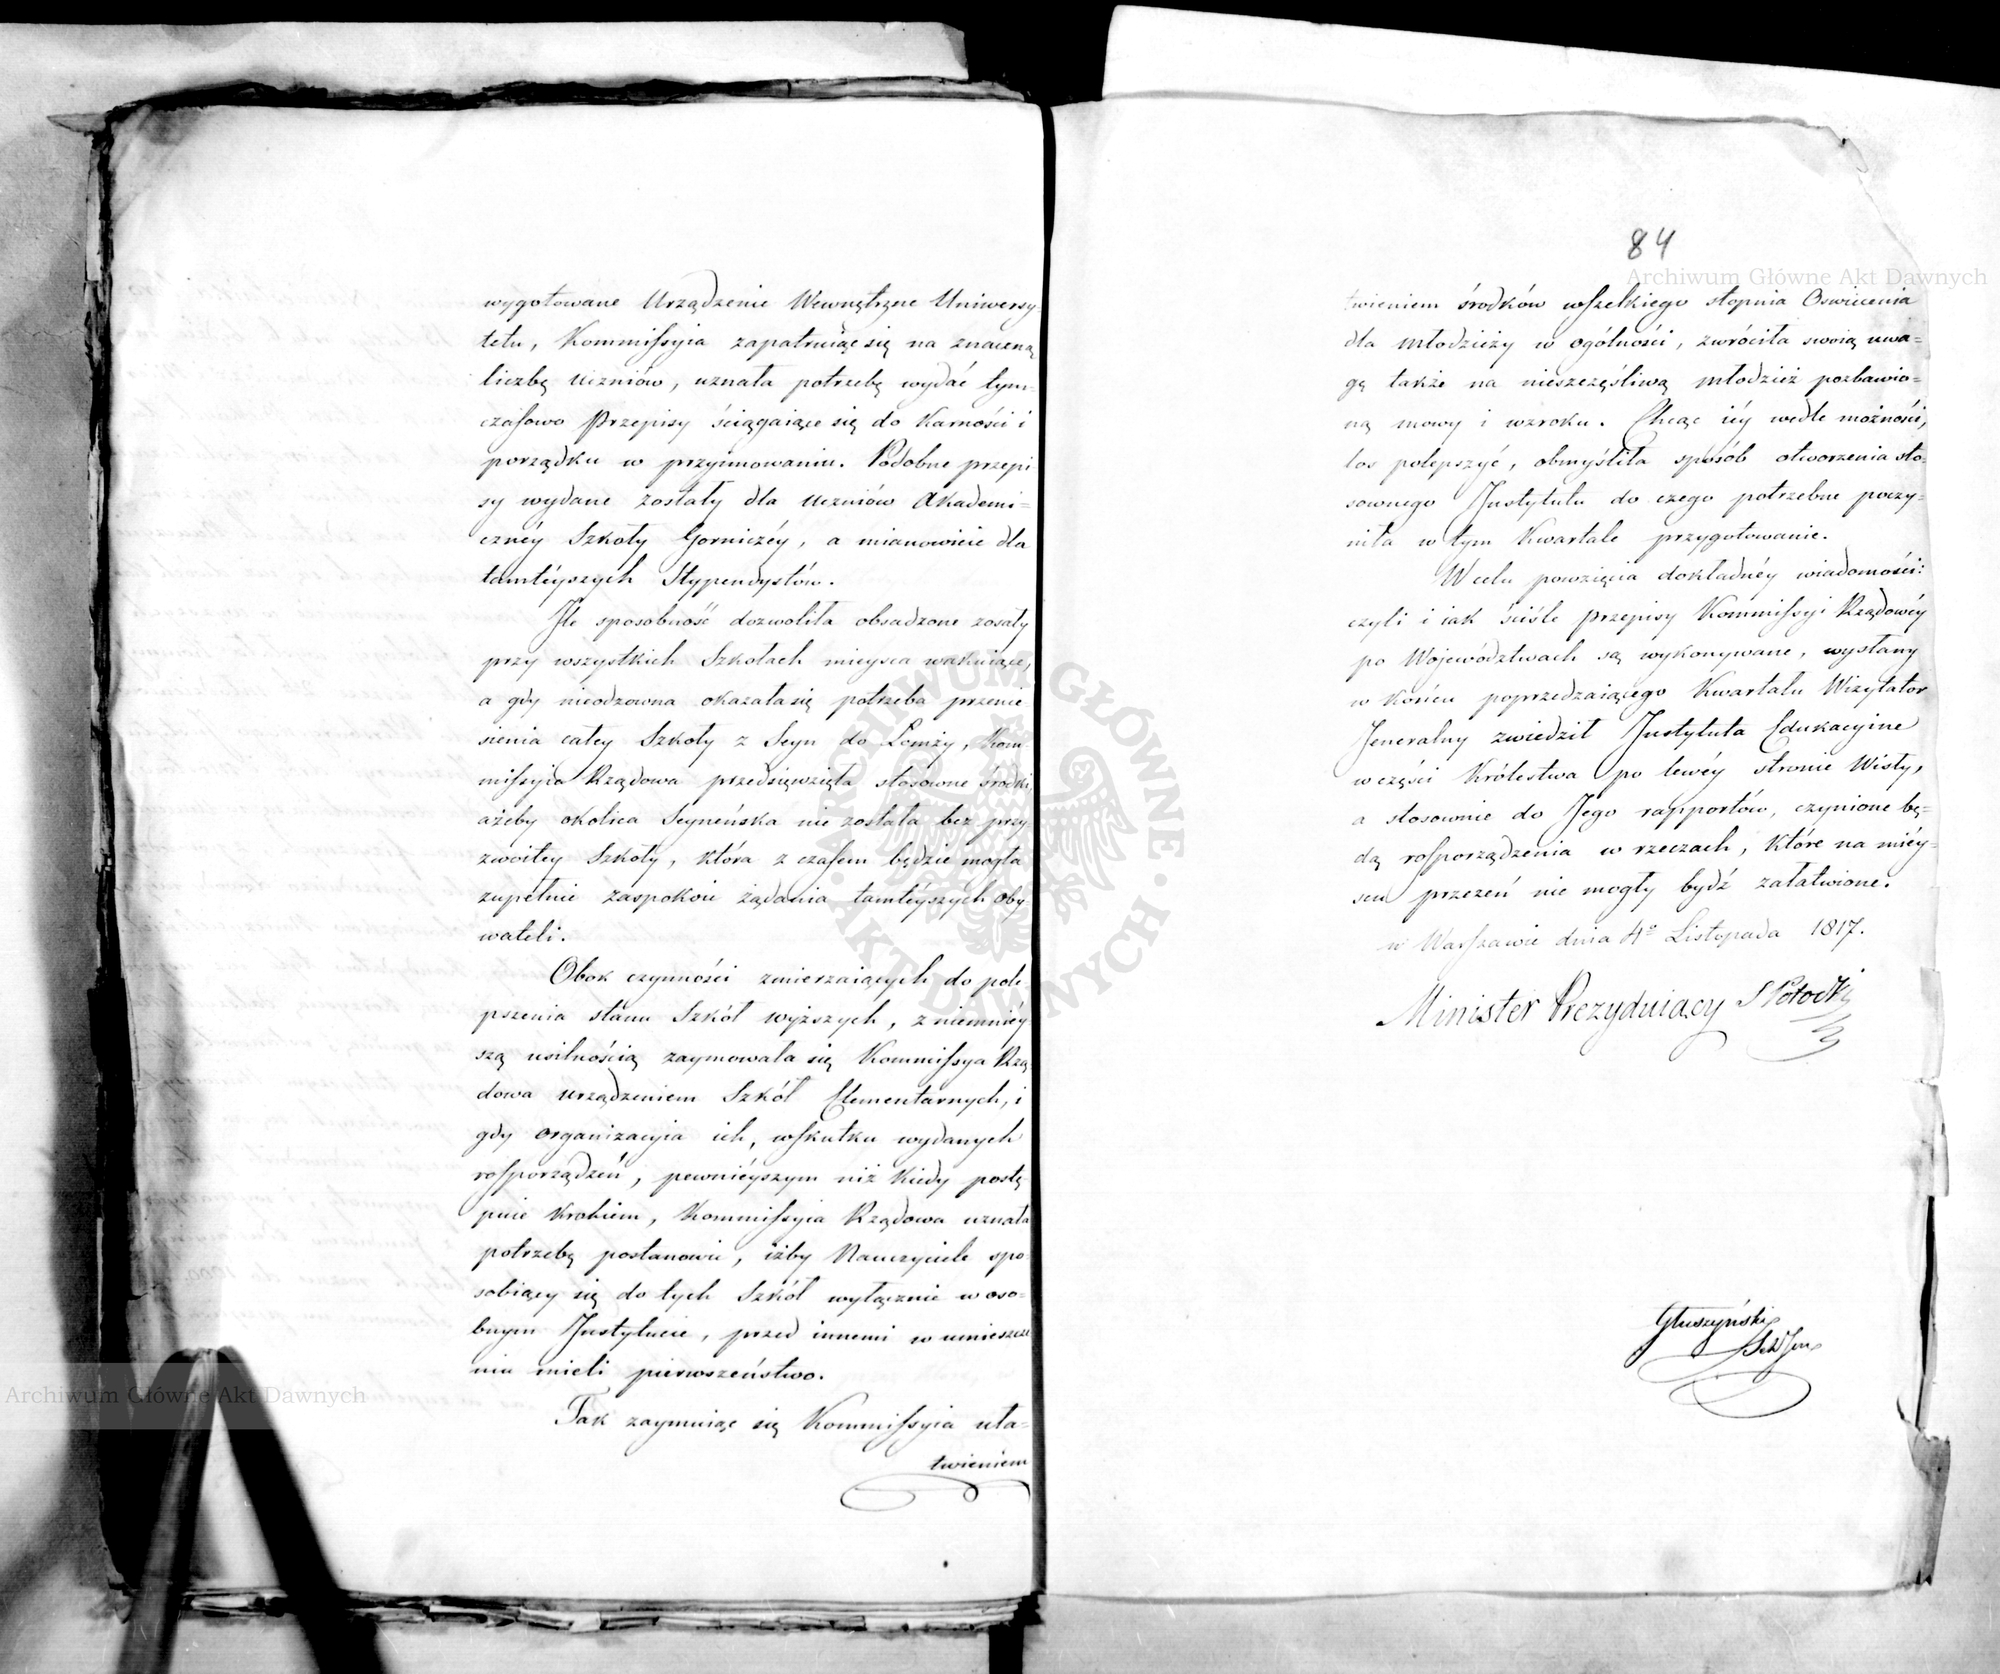 wygotowane Urządzenie Wewnętrzne Uniwersy-
tetu, Kommissyia zapatruiąc się na znaczną
liczbę uczniów, uznała potrzebę wydać tym-
czasowo Przepisy ściągaiące się do Karności i
porządku w przyimowaniu. Podobne przepi
sy wydane zostały dla uczniów Akademi=
cznéy Szkoły Gorniczéy, a mianowicie dla
tamtéyszych Stypendystów.
Ile sposobność dozwoliła obsadzone zosały
przy wszystkich Szkołach mieysca wakuiące,
a gdy nieodzowna okazała się potrzeba przenie
sienia całey Szkoły z Seyn do Łomży, Kom
missyia Rządowa przedsięwzięła stosowne środki,
ażeby okolica Seyneńska nie została bez przy
zwoitey Szkoły, która z czasem będzie mogła
zupełnie zaspokoić żądania tamtéyszych oby
wateli.
Obok czynności zmierzaiących do pole
pszenia stanu Szkół wyższych, z niemniéy
szą usilnością zaymowała się Kommissya Rzą
dowa urządzeniem Szkół Elementarnych, i
gdy organizacyia ich, wskutku wydanych
rosporządzeń, pewniéyszym niż kiedy postę
puie krokiem, Kommissyia Rządowa uznała
potrzebę postanowić, iżby Nauczyciele spo
sobiący się do tych Szkół wyłącznie w oso-
bnym Instytucie, przed innemi w umieszcze
niu mieli pierwszeństwo.
Tak zaymuiąc się Kommissyia uła-
twieniem
84
twieniem środków wszelkiego stopnia Oswiecenia
dla młodzieży w ogólności, zwróciła swoią uwa=
gę także na nieszczęśliwą młodzież pozbawio=
ną mowy i wzroku. Chcąc iéy wedle możności,
los polepszyć, obmyśliła sposób otworzenia sto-
sownego Instytutu do czego potrzebne poczy-
niła w tym Kwartale przygotowanie.
W celu powzięcia dokładnéy wiadomości:
czyli i iak ściśle przepisy Kommissyi Rządowéy
po Województwach są wykonywane, wysłany
w końcu poprzedzaiącego Kwartału Wizytator
Jeneralny zwiedził Instytuta Edukacyine
w części Królestwa po lewéy stronie Wisły,
a stosownie do Jego rapportów, czynione bę=
dą rosporządzenia w rzeczach, które na miéy-
scu przezeń nie mogły bydź załatwione.
w Warszawie dnia 4º Listopada 1817.
Minister Prezyduiący S Potocki
Głuszyński
Archiwum Główne Akt Dawnych
Archiwum Główne Akt Dawnych
ARCHIWUM GŁÓWNE · AKT DAWNYCH ·